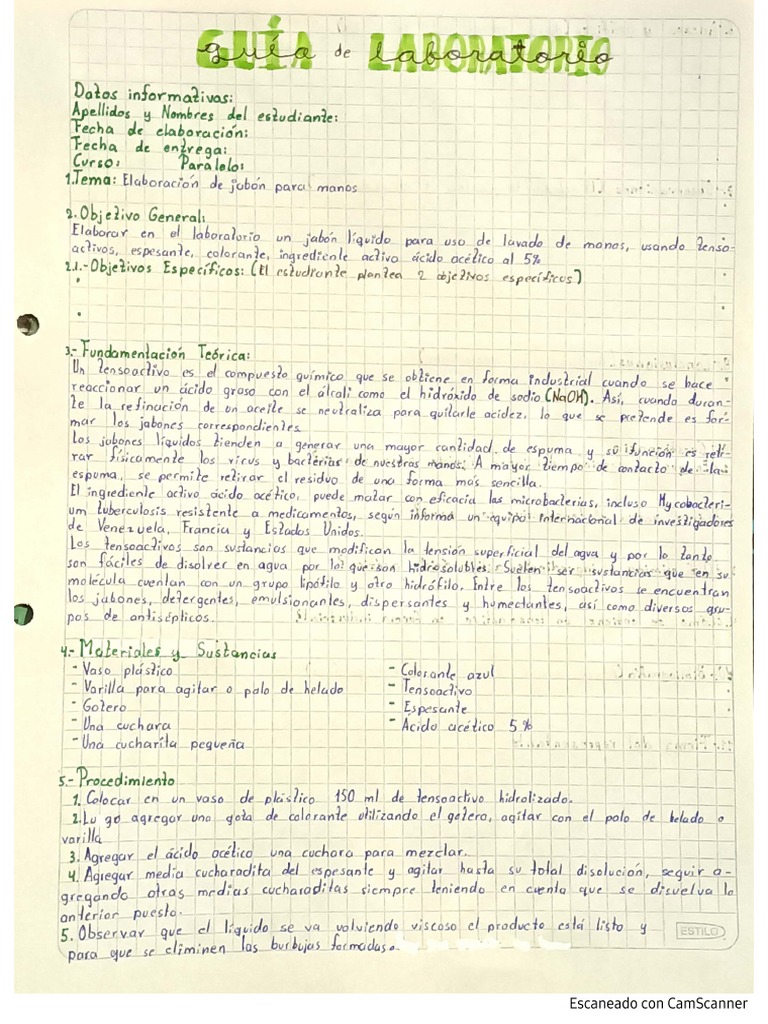 GUÍA de LABORATORIO
Datos informativos:
Apellidos y Nombres del estudiante:
Fecha de elaboración:
Fecha de entrega:
Curso: Paralelo:
1.Tema: Elaboración de jabón para manos
2. Objetivo General:
Elaborar en el laboratorio un jabón líquido para uso de lavado de manos, usando tenso-
activos, espesante, colorante, ingrediente activo ácido acético al 5%
2.1.-Objetivos Específicos: (El estudiante plantea 2 objetivos específicos)
3.- Fundamentación Teórica:
Un tensoactivo es el compuesto químico que se obtiene en forma industrial cuando se hace
reaccionar un ácido graso con el álcali como el hidróxido de sodio (NaOH). Así, cuando duran-
te la refinación de un aceite se neutraliza para quitarle acidez, lo que se pretende es for-
mar los jabones correspondientes.
Los jabones líquidos tienden a generar una mayor cantidad de espuma y su función es reti-
rar físicamente los virus y bacterias de nuestras manos. A mayor tiempo de contacto de la
espuma, se permite retirar el residuo de una forma más sencilla.
El ingrediente activo ácido acético, puede matar con eficacia las microbacterias, incluso Mycobacteri-
um tuberculosis resistente a medicamentos, según informa un equipo internacional de investigadores
de Venezuela, Francia y Estados Unidos.
Los tensoactivos son sustancias que modifican la tensión superficial del agua y por lo tanto
son fáciles de disolver en agua por lo que son hidrosolubles. Suelen ser sustancias que en su
molécula cuentan con un grupo lipófilo y otro hidrófilo. Entre los tensoactivos se encuentran
los jabones, detergentes, emulsionantes, dispersantes y humectantes, así como diversos gru-
pos de antisépticos.
4.- Materiales y Sustancias
- Vaso plástico
- Varilla para agitar o palo de helado
- Gotero
- Una cuchara
- Una cucharita pequeña
- Colorante azul
- Tensoactivo
- Espesante
- Acido acético 5%
5.- Procedimiento
1. Colocar en un vaso de plástico 150 ml de tensoactivo hidrolizado.
2. Lu go agregar una gota de colorante utilizando el gotero, agitar con el palo de helado o
varilla
3. Agregar el ácido acético una cuchara para mezclar.
4. Agregar media cucharadita del espesante y agitar hasta su total disolución, seguir a-
gregando otras medias cucharaditas siempre teniendo en cuenta que se disuelva lo
anterior puesto.
5. Observar que el líquido se va volviendo viscoso el producto está listo y
para que se eliminen las burbujas formadas.
ESTILO
Escaneado con CamScanner